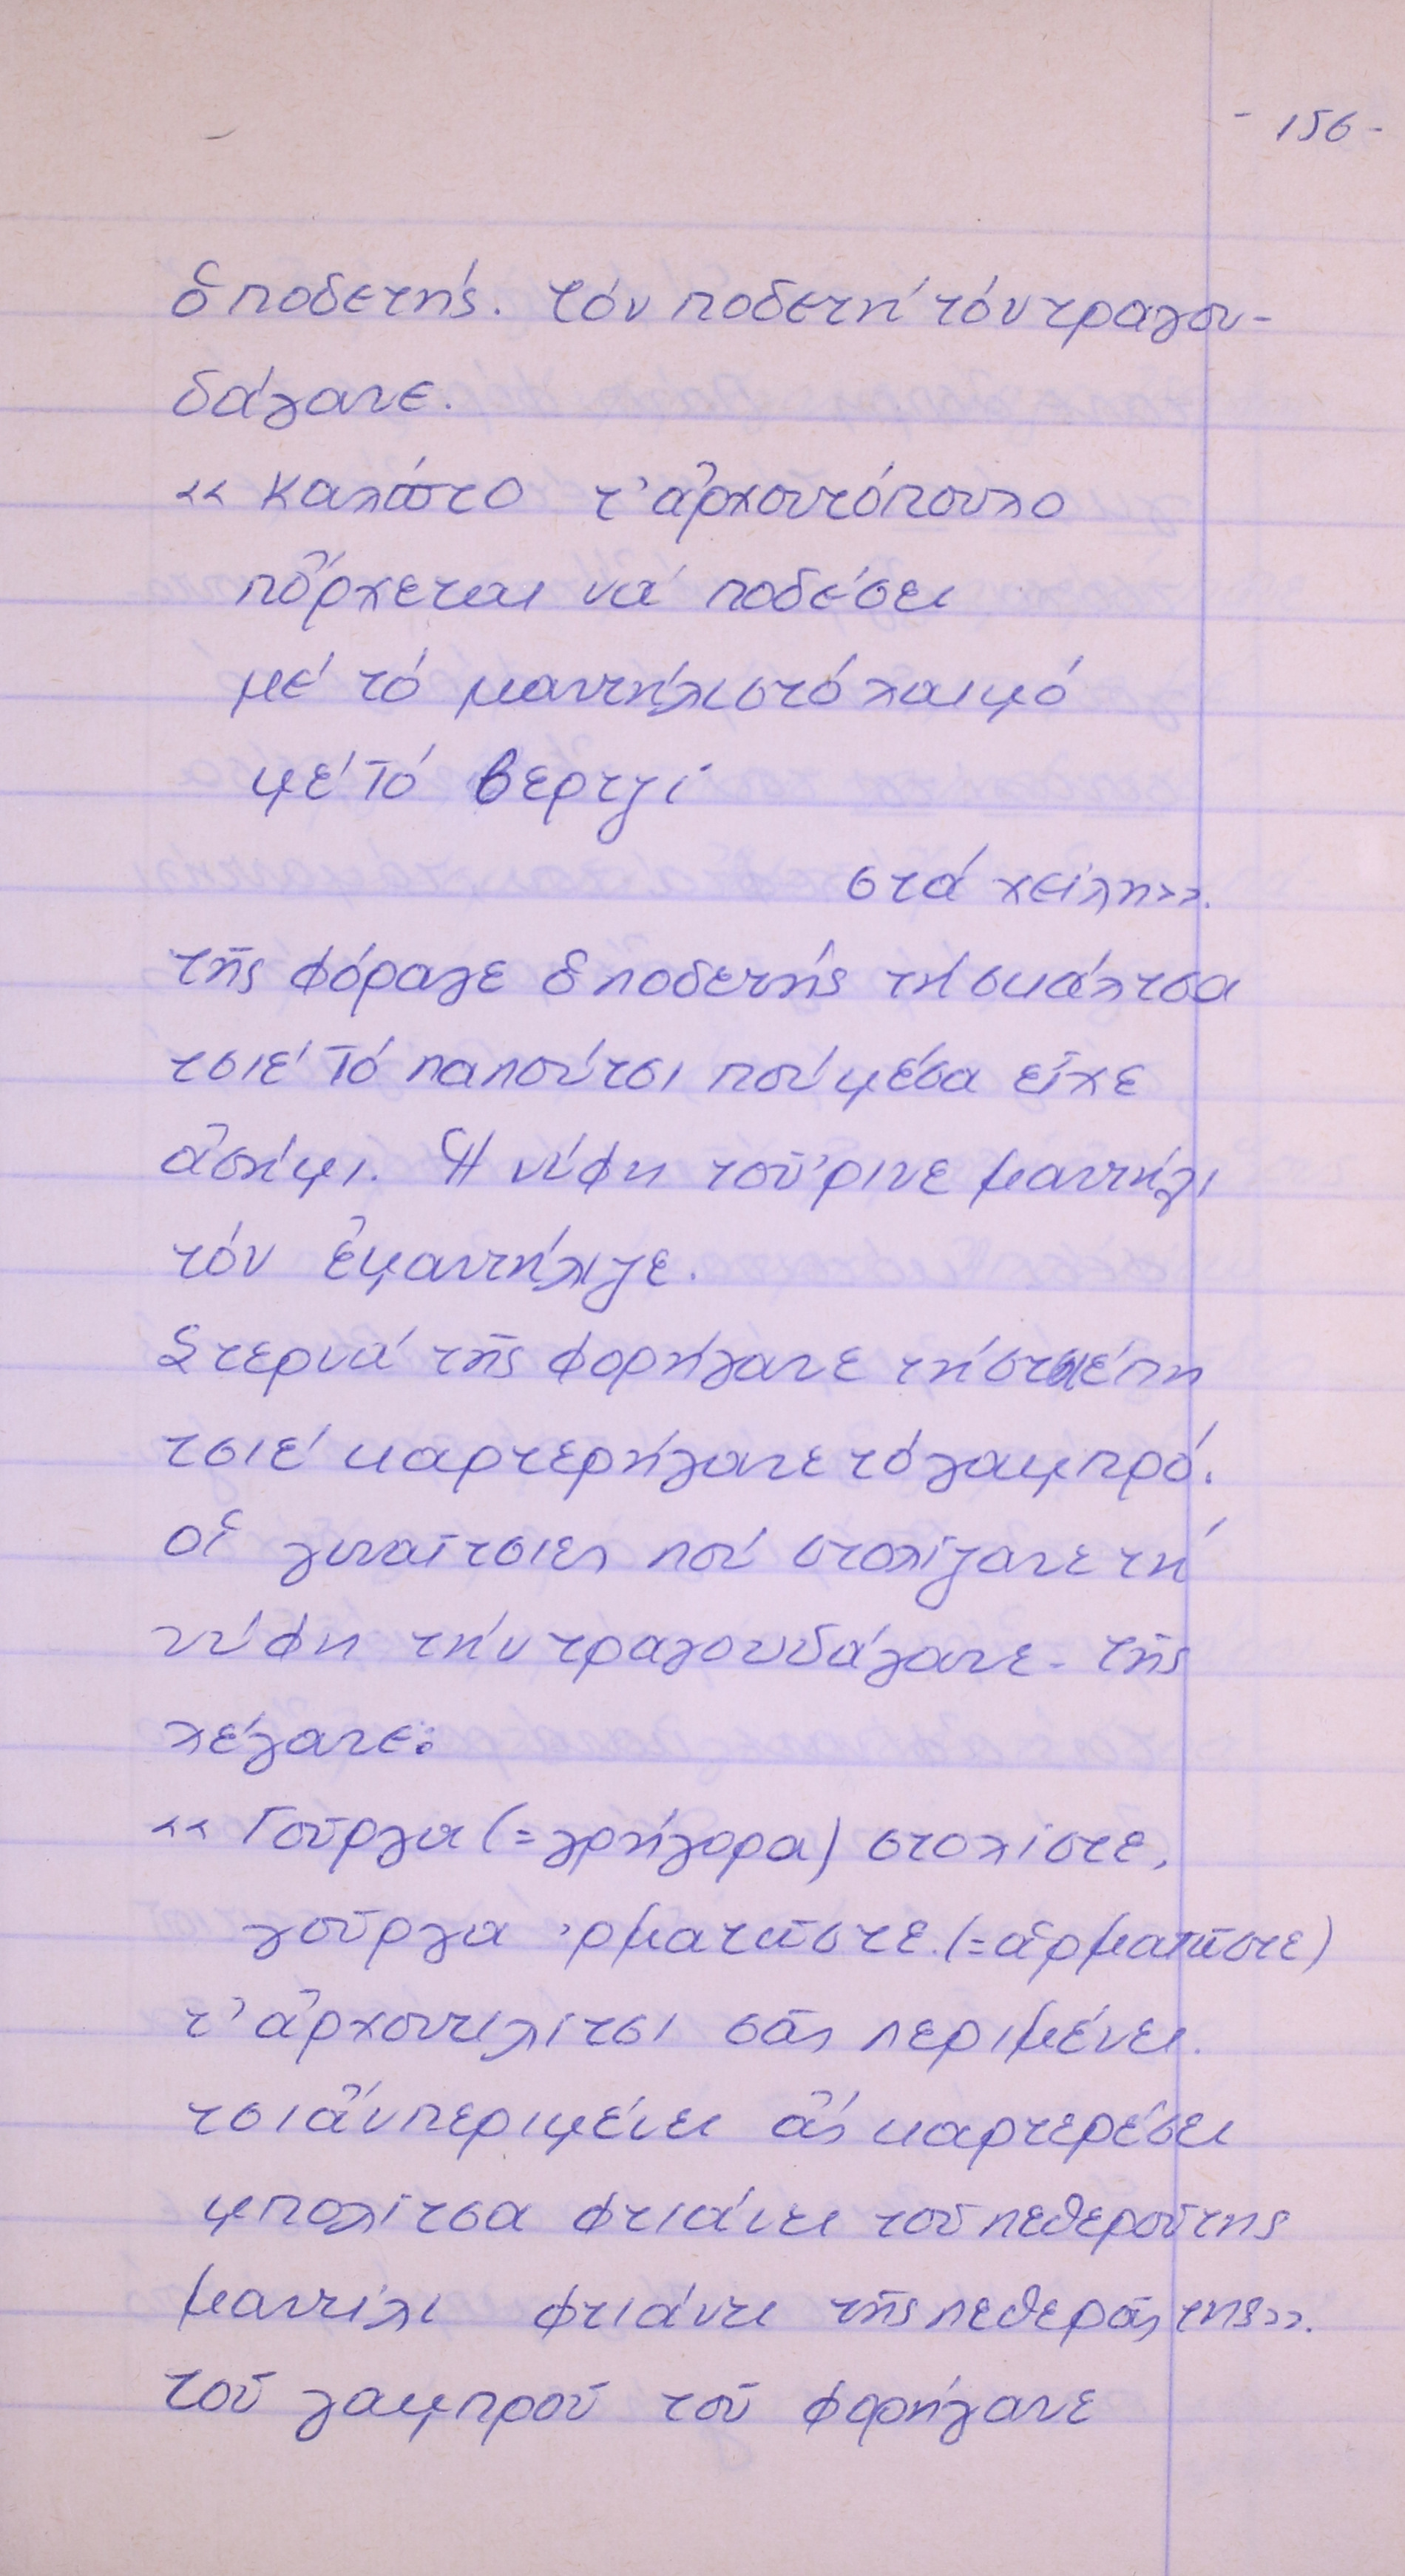 - 156 -
ὁ ποδετής. Τόν ποδετή τόν τραγου-
δάγανε.
« Καλῶστο τ' ἀρχοντόπουλο
πὄρχεται νά ποδέσει
μέ τό μαντήλι στό λαιμό
μέ τό βερτζί
στά χείλη».
τῆς φόραγε ὁ ποδετής τή σκάλτσα
τσιέ τό παπούτσι πού μέσα εἶχε
ἀσήμι. Ἡ νύφη τοῦ 'ρινε μαντήλι
τόν ἐμαντήλιζε.
Στερνά τῆς φορήγανε τή στσιέπη
τσιέ καρτερήγανε τό γαμπρό.
Οἱ γυναῖτσιες πού στολίζανε τή
νύφη τήν τραγουδάγανε. Τῆς
λέγανε:
« Γοῦργα (= γρήγορα) στολίστε,
γοῦργα 'ρματῶστε. (= ἀρματῶστε)
τ' ἀρχοντιλίτσι σᾶς περιμένει.
τσι ἄν περιμένει ἄς καρτερέσει
μπολίτσα φτιάνει τοῦ πεθεροῦ της
μαντίλι φτιάνει τῆς πεθερᾶς της».
Τοῦ γαμπροῦ τοῦ φορήγανε